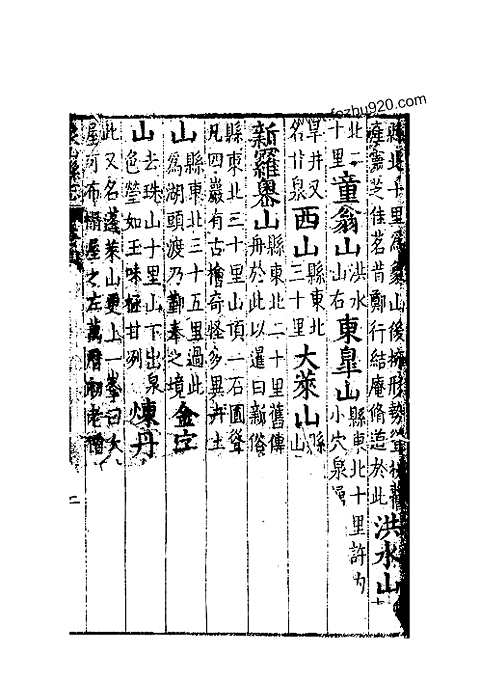 fozhu920.com
縣北十里為象山後擁形勢
產靈芝佳茗昔鄭行結庵脩道於此 洪水山
北二十里 童翁山 洪水山右 東皐山 縣東北十里許
小穴泉
旱井又名 泉 西山 縣東北三十里 大萊山 縣
新羅嶴山 縣東北二十里舊傳
舟於此以暹曰新俗
縣東北三十里山頂一石圓聳
凡四巖有古檜奇怪多異卉土
山 縣東北三十五里過此
為湖頭渡乃勤奉之境 金
山 去珠山十里山下出泉
色瑩如玉味極甘冽 煉丹
此又名蓬萊山更上一峯曰大
屋可布 屋之左萬曆初老僧
二